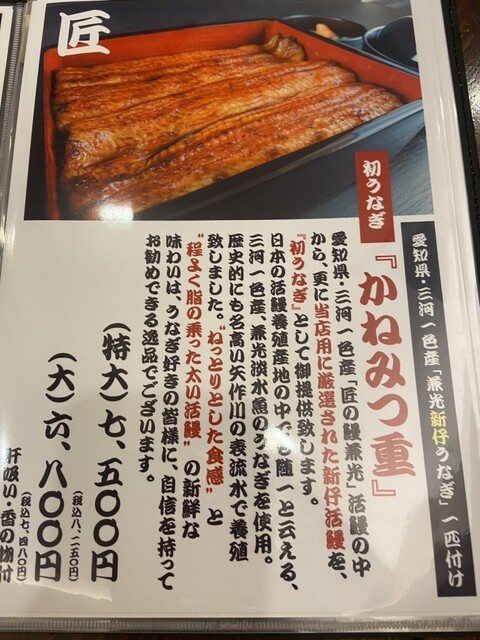 匠
愛知県・三河一色産「兼光新仔うなぎ」一匹付け
初うなぎ
『かねみつ重』
愛知県・三河一色産「匠の鰻兼光」活鰻の中
から、更に当店用に厳選された新仔活鰻を、
『初うなぎ』として御提供致します。
日本の活鰻養殖産地の中でも随一と云える、
三河一色産、兼光淡水魚のうなぎを使用。
歴史的にも名高い矢作川の表流水で養殖
致しました。“ねっとりとした食感”と
“程よく脂の乗った太い活鰻”の新鮮な
味わいは、うなぎ好きの皆様に、自信を持って
お勧めできる逸品でございます。
(特大)七、五〇〇円
(税込八、二五〇円)
(大)六、八〇〇円
(税込七、四八〇円)
肝吸い・香の物付